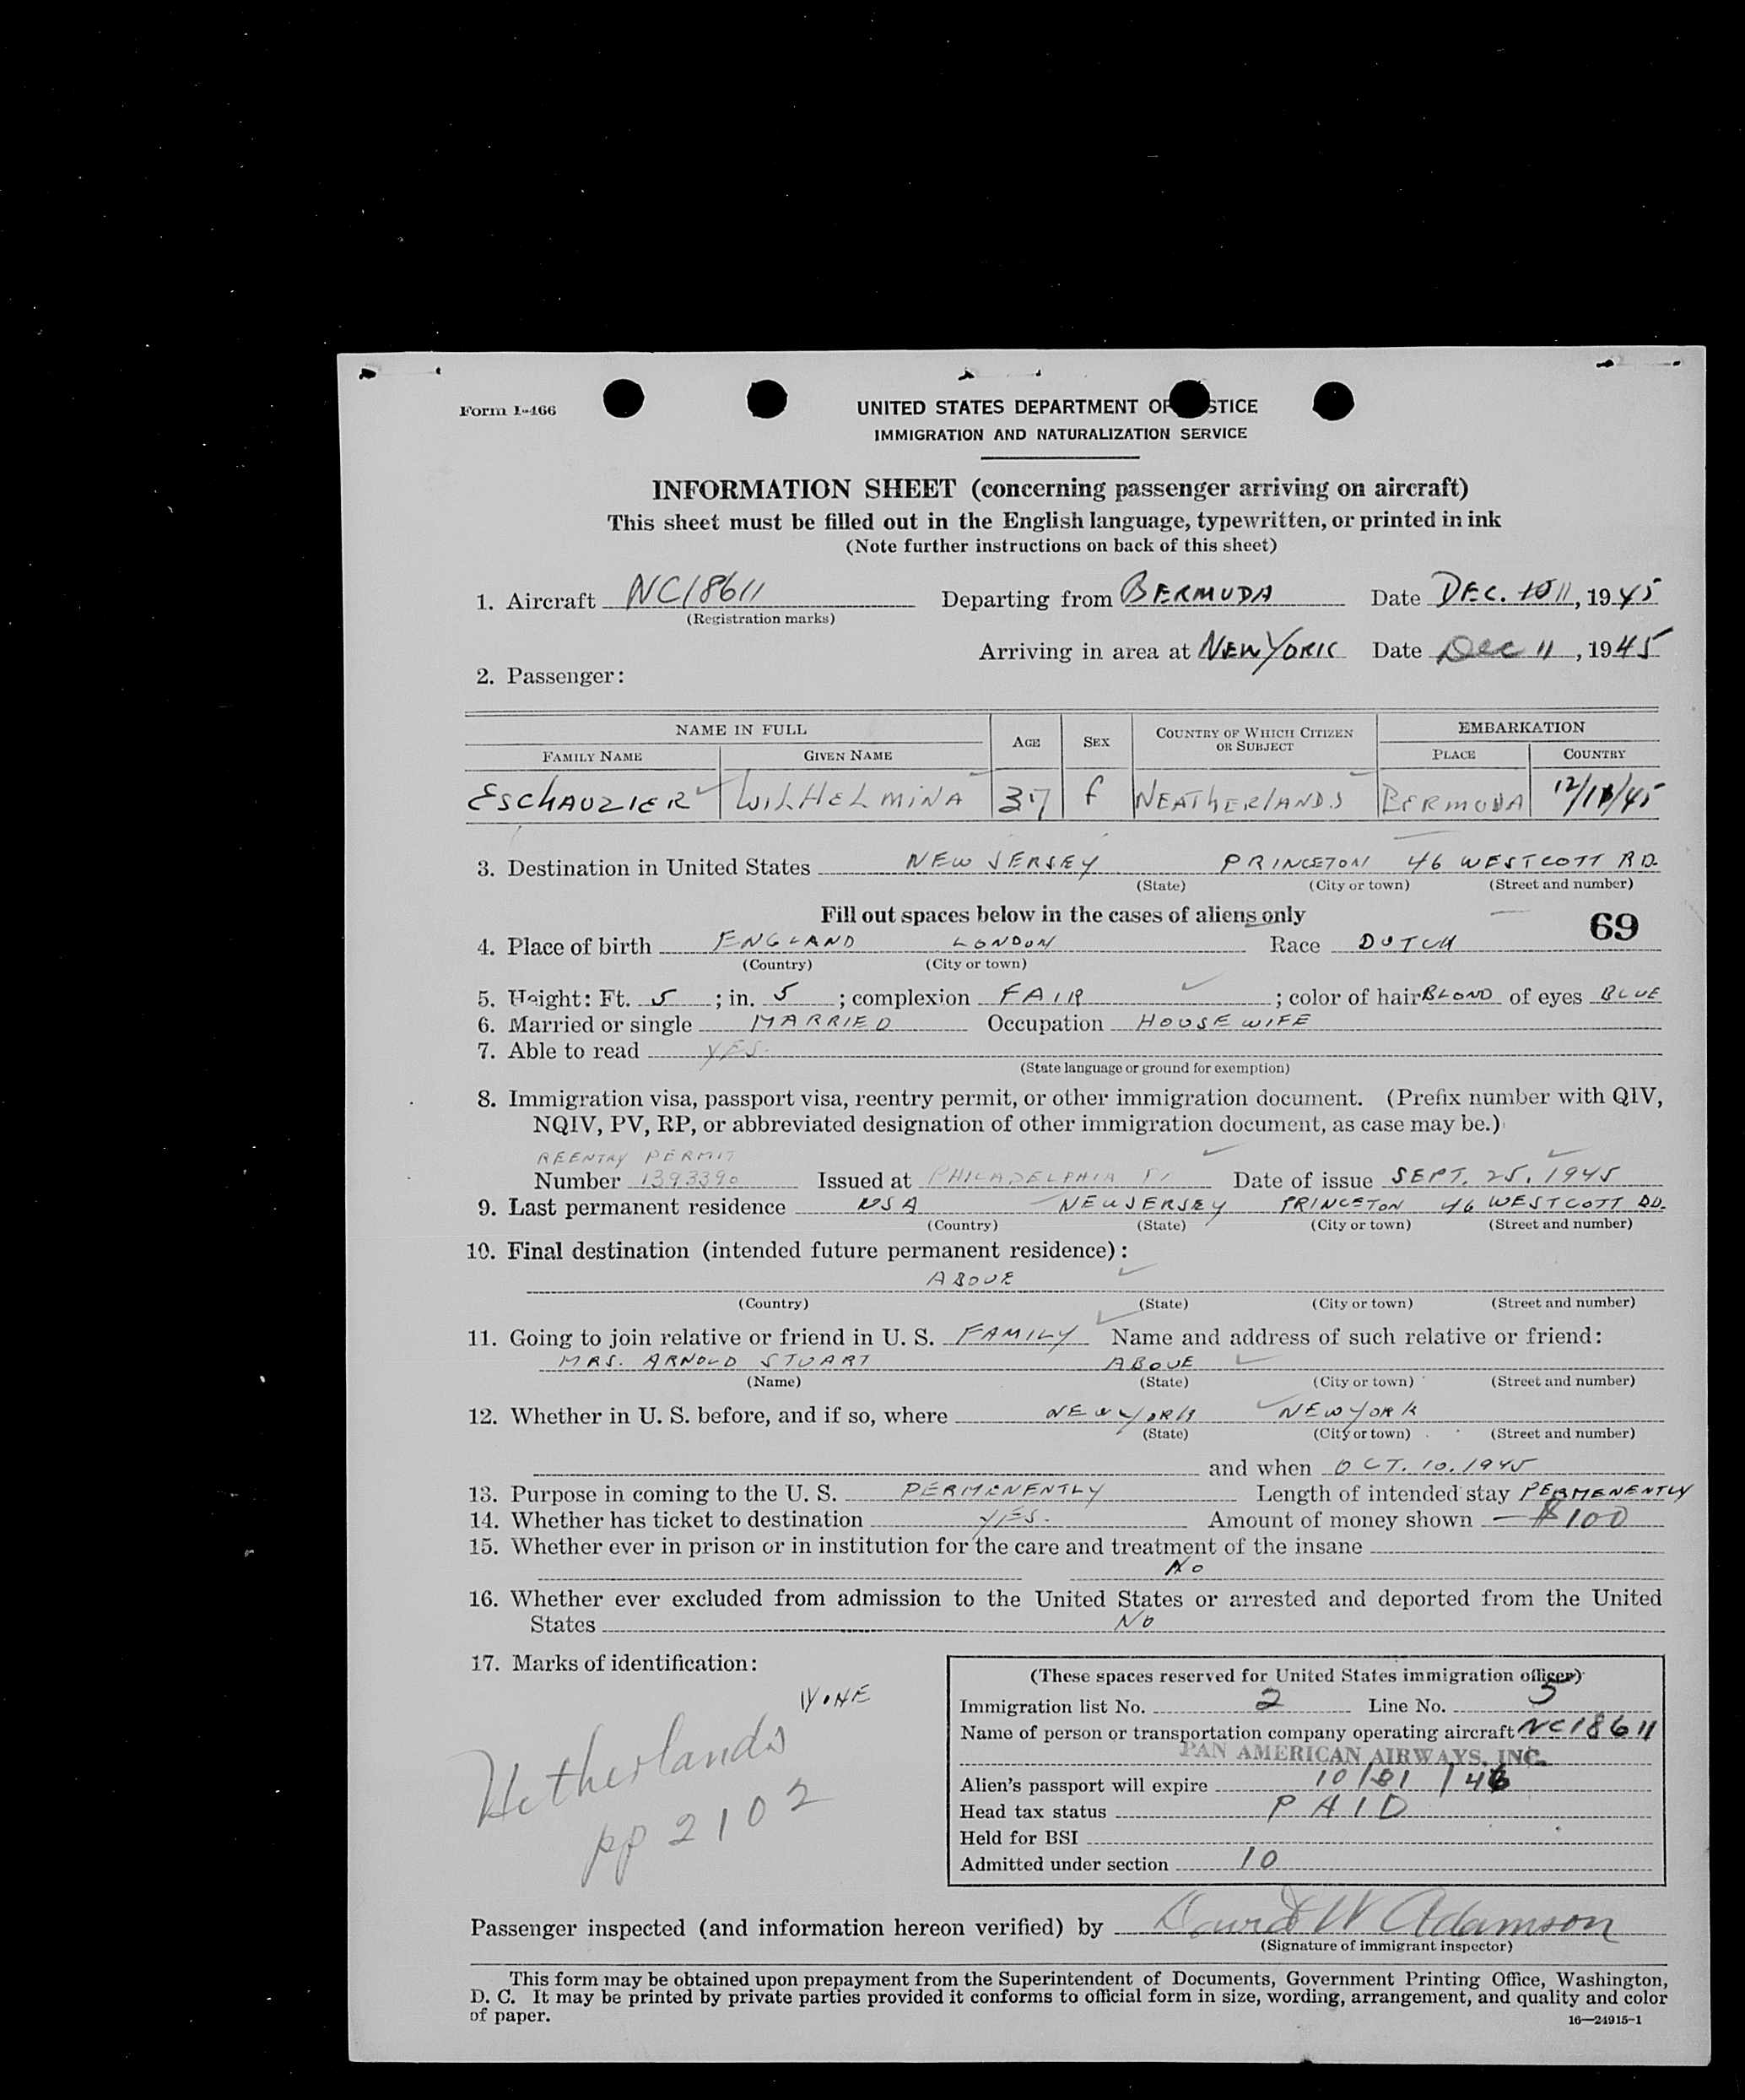 Form I-466
UNITED STATES DEPARTMENT OF STICE
IMMIGRATION AND NATURALIZATION SERVICE
INFORMATION SHEET (concerning passenger arriving on aircraft)
This sheet must be filled out in the English language, typewritten, or printed in ink
(Note further instructions on back of this sheet)
1. Aircraft NC18611 Departing from BERMUDA Date DEC. 11, 1945
(Registration marks)
Arriving in area at NEW YORK Date Dec 11, 1945
2. Passenger:
NAME IN FULL AGE SEX COUNTRY OF WHICH CITIZEN OR SUBJECT EMBARKATION
FAMILY NAME GIVEN NAME PLACE COUNTRY
ESCHAUZIER WILHELMINA 37 f NEATHERLANDS BERMUDA 12/11/45
3. Destination in United States NEW JERSEY PRINCETON 46 WESTCOTT RD.
(State) (City or town) (Street and number)
Fill out spaces below in the cases of aliens only 69
4. Place of birth ENGLAND LONDON Race DUTCH
(Country) (City or town)
5. Height: Ft. 5; in. 5; complexion FAIR; color of hair BLOND of eyes BLUE
6. Married or single MARRIED Occupation HOUSEWIFE
7. Able to read YES.
(State language or ground for exemption)
8. Immigration visa, passport visa, reentry permit, or other immigration document. (Prefix number with QIV,
NQIV, PV, RP, or abbreviated designation of other immigration document, as case may be.)
REENTRY PERMIT
Number 1393390 Issued at PHILADELPHIA Date of issue SEPT. 25. 1945
9. Last permanent residence USA NEW JERSEY PRINCETON 46 WESTCOTT RD.
(Country) (State) (City or town) (Street and number)
10. Final destination (intended future permanent residence):
ABOVE
(Country) (State) (City or town) (Street and number)
11. Going to join relative or friend in U. S. FAMILY Name and address of such relative or friend:
MRS. ARNOLD STUART ABOVE
(Name) (State) (City or town) (Street and number)
12. Whether in U. S. before, and if so, where NEW YORK NEW YORK
(State) (City or town) (Street and number)
and when OCT. 10. 1945
13. Purpose in coming to the U. S. PERMENENTLY Length of intended stay PERMENENTLY
14. Whether has ticket to destination YES. Amount of money shown — $100
15. Whether ever in prison or in institution for the care and treatment of the insane
No
16. Whether ever excluded from admission to the United States or arrested and deported from the United
States No
17. Marks of identification:
NONE
Netherlands
pp 2102
(These spaces reserved for United States immigration officer)
Immigration list No. 2 Line No. 3
Name of person or transportation company operating aircraft NC18611
PAN AMERICAN AIRWAYS, INC.
Alien's passport will expire 10/31/46
Head tax status PAID
Held for BSI
Admitted under section 10
Passenger inspected (and information hereon verified) by David W Adamson
(Signature of immigrant inspector)
This form may be obtained upon prepayment from the Superintendent of Documents, Government Printing Office, Washington,
D. C. It may be printed by private parties provided it conforms to official form in size, wording, arrangement, and quality and color
of paper.
16—24915-1